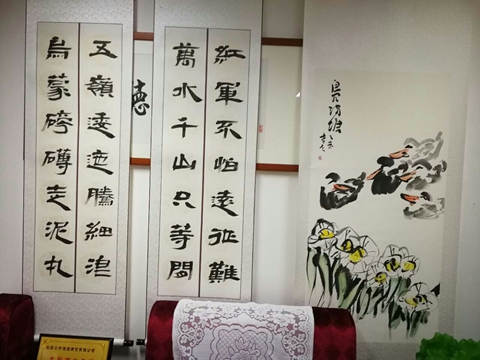 紅軍不怕遠征難
萬水千山只等閒
五嶺逶迤騰細浪
烏蒙磅礴走泥丸
德